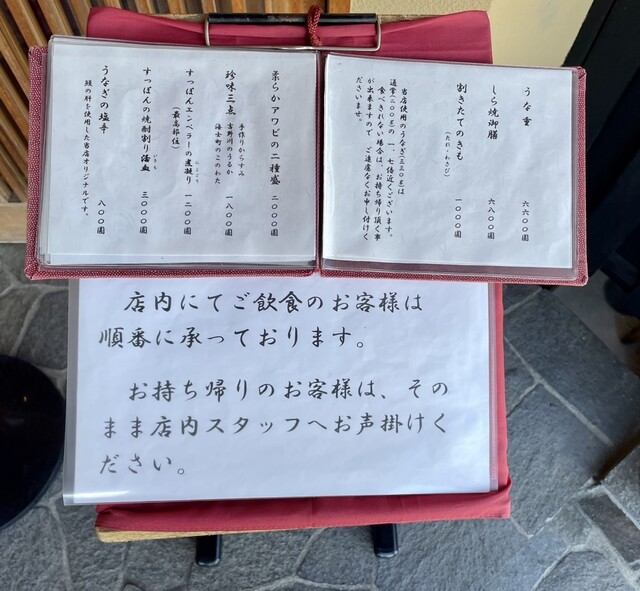 うな重 六六〇〇圓
しら焼御膳 六八〇〇圓
割きたてのきも 一〇〇〇圓
(たれ・わさび)
当店使用のうなぎ(三三〇gは
通常(二〇〇gの一、七倍近くございます。
食べきれない場合は、お持ち帰り頂く事
が出来ますので、ご遠慮なくお申し付けく
ださいませ。
柔らかアワビの二種盛 二〇〇〇圓
珍味三点 一八〇〇圓
手作りからすみ
吉野川のうるか
海士町のこのわた
すっぽんエンペラーの煮凝り 一二〇〇圓
にこごり
(最高部位)
すっぽんの焼酎割り活血 三〇〇〇圓
いきち
うなぎの塩辛 八〇〇圓
鰻の肝を使用した当店オリジナルです。
店内にてご飲食のお客様は
順番に承っております。
お持ち帰りのお客様は、その
まま店内スタッフへお声掛けく
ださい。